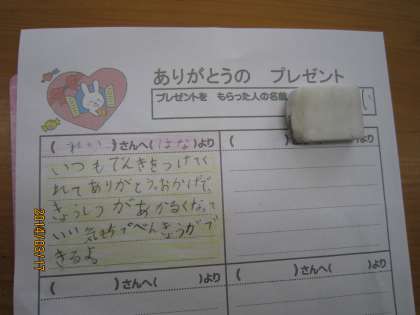 ありがとうの プレゼント
プレゼントを もらった人の名前
( れい )さんへ( はな )より
いつもでんきをつけてく
れてありがとう。おかげで、
きょうしつがあかるくなって
いい気持でべんきょうがで
きるよ
( )さんへ( )より
( )さんへ( )より
( )さんへ( )より
2014/03/17